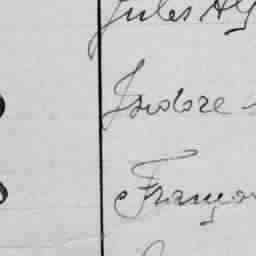 Jules Al
Isidore
Françoi